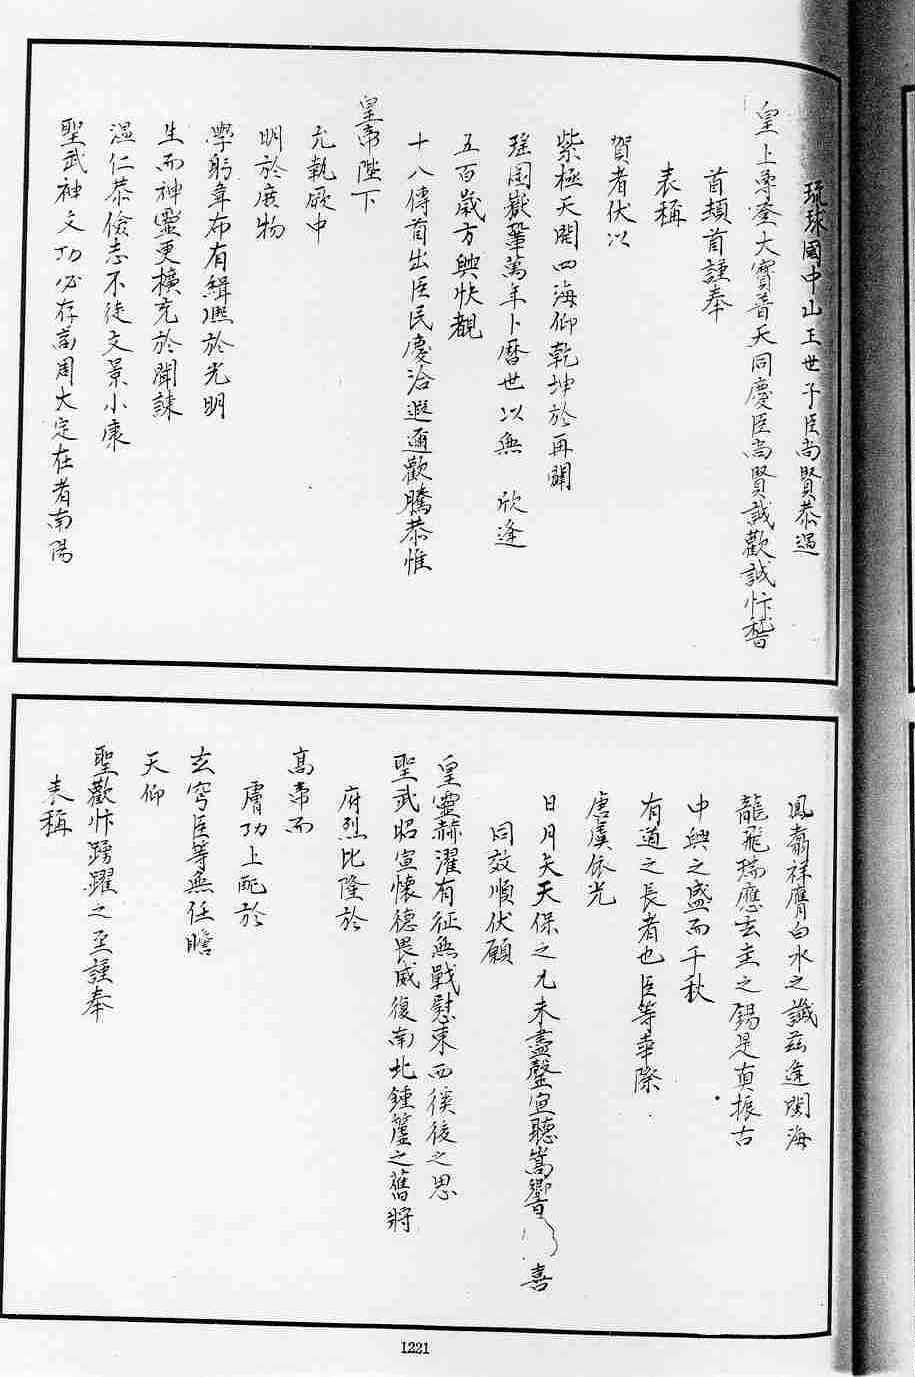 琉球國中山王世子臣尚賢恭遇
皇上尊登大寶普天同慶臣尚賢誠歡誠忭稽
首頓首謹奉
表稱
賀者伏以
紫極天開四海仰乾坤於再闢
瑤圖嶽鞏萬年卜曆世以無 欣逢
五百歲方興快覩
十八傳首出臣民慶洽遐邇歡騰恭惟
皇帝陛下
允執厥中
明於庶物
學躬韋布有緝熙於光明
生而神靈更擴充於聞誄
溫仁恭儉志不徒文景小康
聖武神文功必存高周大定在者南陽
鳳翥祥膺白水之讖茲逢閩海
龍飛瑞應玄圭之錫是真振古
中興之盛而千秋
有道之長者也臣等幸際
唐虞依光
日月矢天保之 未盡罄宣聽嵩響 喜
同效順伏願
皇靈赫濯有征無戰慰東西徯後之思
聖武昭宣懷德畏威復南北鍾簴之舊將
府烈比隆於
高帝而
膚功上配於
玄穹臣等無任瞻
天仰
聖歡忭踴躍之至謹奉
表稱
1221